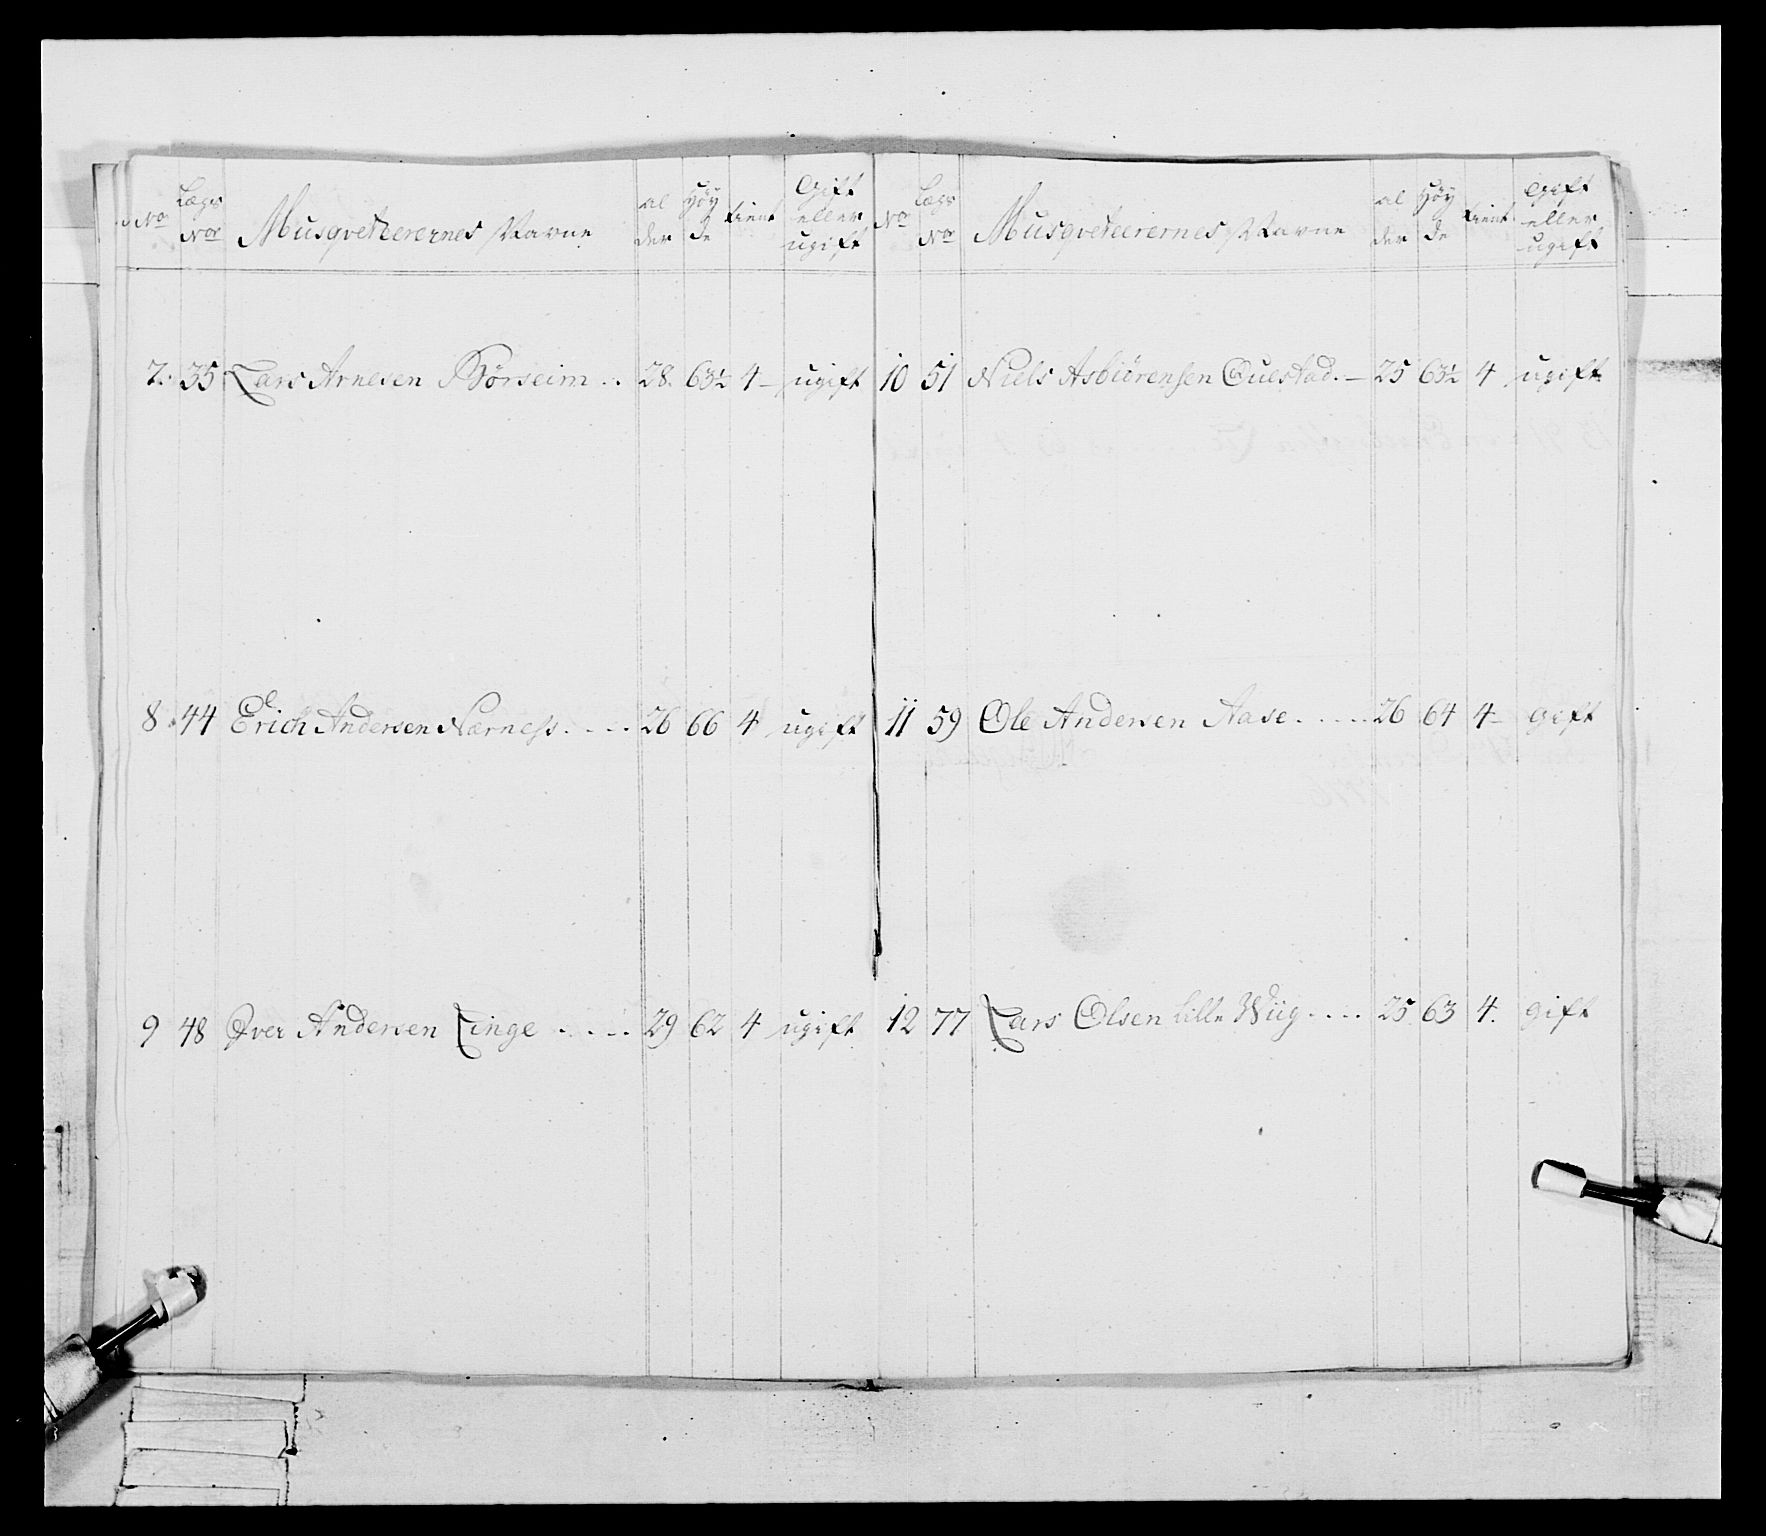 No Lægs No Musqveteerernes Navne al der Høy de tient Gift eller ugift
7. 35 Lars Arnesen Børseim .. 28. 63½ 4 – ugift
8. 44 Erich Andersen Nærness .... 26 66 4 ugift
9 48 Iver Andersen Linge ..... 29 62 4 ugift
No Lægs No Musqveteerernes Navne al der Høy de tient Gift eller ugift
10 51 Niels Asbiörensen Questad. – 25 63½ 4 ugift
11 59 Ole Andersen Aase ..... 26 64 4 – gift
12 77 Lars Olsen Lille Wiig .... 25. 63 4. gift